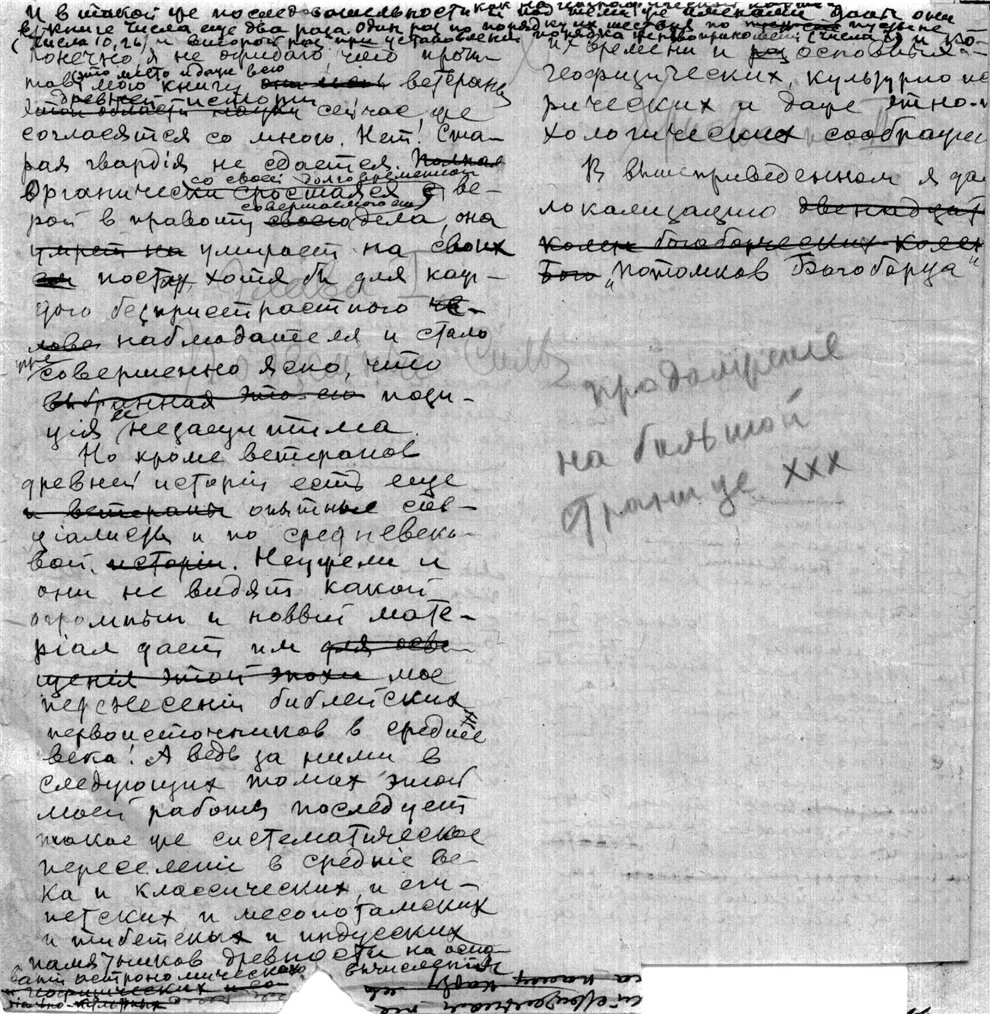 И в такой же последовательности
даны они
в книге Числа еще два раза один раз по порядку их шествия по
(Числа 10, 26) и второй раз при установлении порядка
Конечно, я не ожидаю, что прочи-
тав это место и даже всю мою книгу, ветераны
древней истории сейчас же
согласятся со мною. Нет! Ста-
рая гвардія не сдается. Полная
Органически сростаяся со своей долговременной ве-
рой в правоту совершаемого ею своего дела, она
умрет на умирает на своих
постах, хотя б для каж-
дого безпристрастного че-
ловек наблюдателя и стало
уже совершенно ясно, что
выбранная ею пози-
ція ее незащитима.
Но кроме ветеранов
древней исторіи есть еще
и ветераны опытные спе-
ціалисты и по средневеко-
вой исторіи. Неужели и
они не видят какой
огромный и новый мате-
ріал дает им для осве-
щенія этой эпохи мое
перенесеніе библейских
первоисточников в средние
века! А ведь за ними в
следующих томах этой
моей работы последует
такое же систематическое
переселеніе в средніе ве-
ка и классических, и еги-
петских, и месопотамских
и тибетских и индусских
памятников древности на осно-
ваніи астрономических вычислений
их времени и основных
геофизических, культурно ис
рических и даже этно-п
хологических соображен
В вышеприведенном я да
локализацію двенадцат
колен богоборческих колен
Бого „Потомков Богоборца"
продолжение
на большой
странице ххх